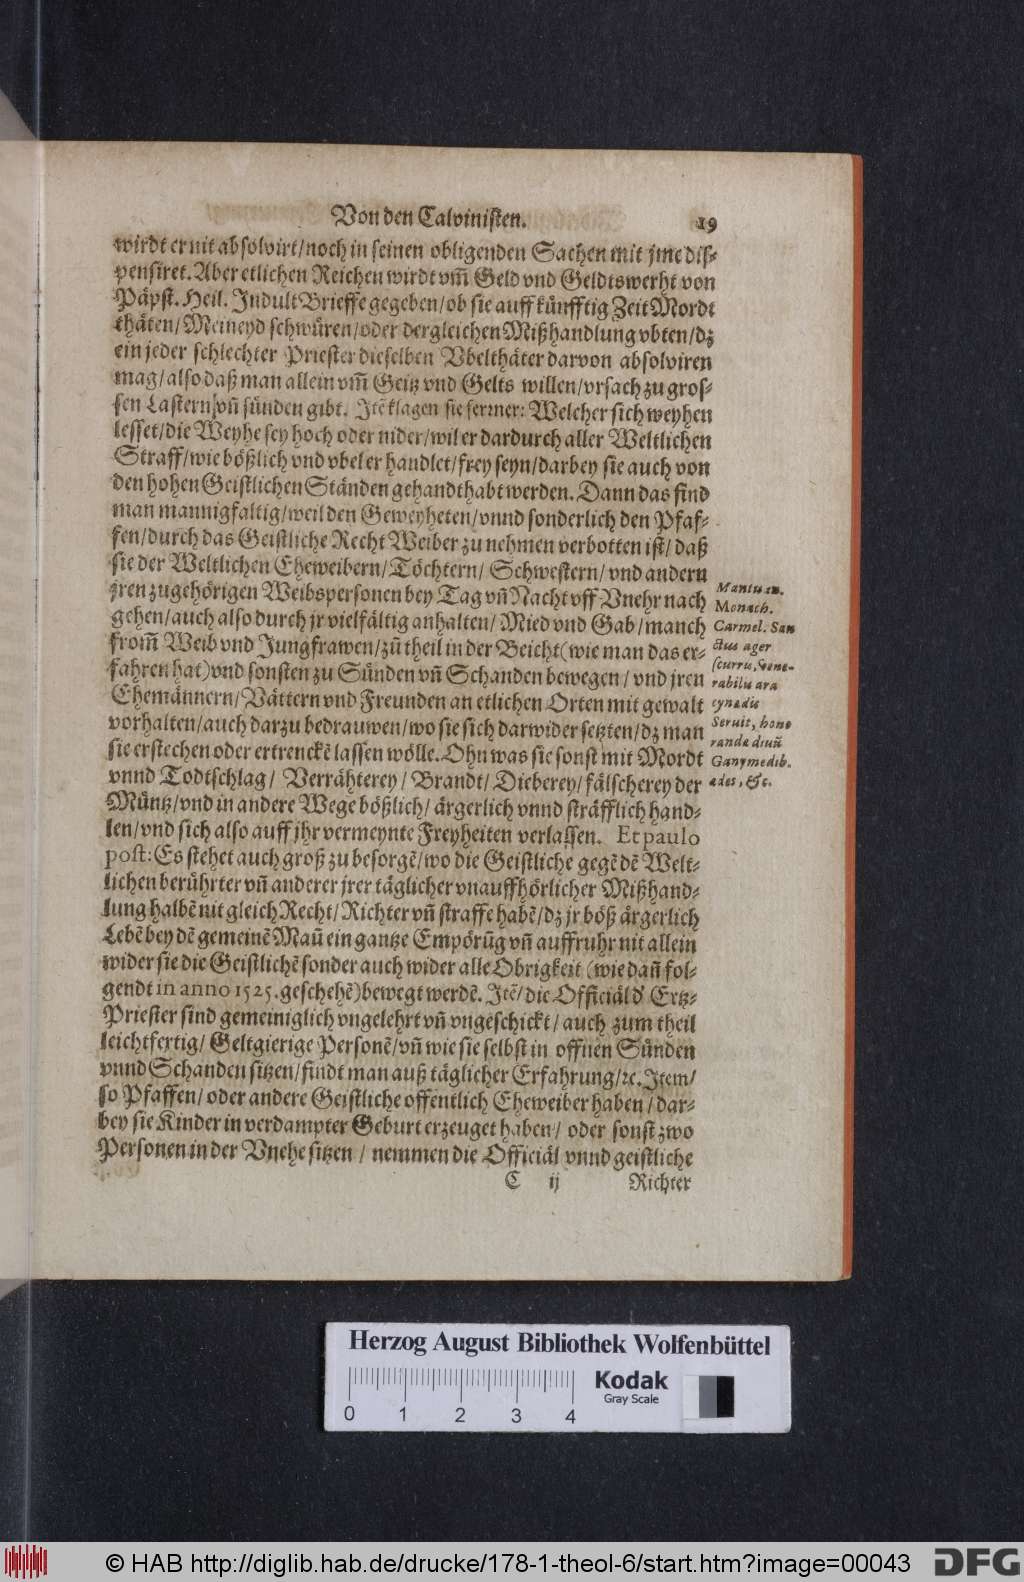 Von den Calvinisten. 19
wirdt er nit absolvirt/noch in seinen obligenden Sachen mit jme diß-
pensiret. Aber etlichen Reichen wirdt vm̃ Geld vnd Geldtswerht von
Päpst. Heil. Indult Brieffe gegeben/ob sie auff künfftig Zeit Mordt
thäten/Meineyd schwüren/oder dergleichen Mißhandlung vbten/dz
ein jeder schlechter Priester dieselben Vbelthäter darvon absolviren
mag/also daß man allein vm̃ Geitz vnd Gelts willen/vrsach zu gros-
sen Lastern vñ sünden gibt. Itẽ klagen sie ferrner: Welcher sich weyhen
lesset/die Weyhe sey hoch oder nider/wil er dardurch aller Weltlichen
Straff/wie bößlich vnd vbel er handlet/frey seyn/darbey sie auch von
den hohen Geistlichen Ständen gehandthabt werden. Dann das find
man mannigfaltig/weil den Geweyheten/vnnd sonderlich den Pfaf-
fen/durch das Geistliche Recht Weiber zu nehmen verbotten ist/daß
sie der Weltlichen Eheweibern/Töchtern/ Schwestern/vnd andern
jren zugehörigen Weibspersonen bey Tag vñ Nacht vff Vnehr nach
gehen/auch also durch jr vielfältig anhalten/Mied vnd Gab/manch
from̃ Weib vnd Jungfrawen/zũ theil in der Beicht(wie man das er-
fahren hat)vnd sonsten zu Sünden vñ Schanden bewegen/vnd jren
Ehemännern/Vättern vnd Freunden an etlichen Orten mit gewalt
vorhalten/auch darzu bedrauwen/wo sie sich darwider setzten/dz man
sie erstechen oder ertrenckẽ lassen wölle. Ohn was sie sonst mit Mordt
vnnd Todtschlag/ Verrähterey/ Brandt/Dieberey/fälscherey der
Müntz/vnd in andere Wege bößlich/ ärgerlich vnnd sträfflich hand-
len/vnd sich also auff jhr vermeynte Freyheiten verlassen. Et paulo
post: Es stehet auch groß zu besorgẽ/wo die Geistliche gegẽ dẽ Welt-
lichen berührter vñ anderer jrer täglicher vnauffhörlicher Mißhand-
lung halbẽ nit gleich Recht/Richter vñ straffe habẽ/dz jr böß ärgerlich
Lebẽ bey dẽ gemeinẽ Mañ ein gantze Empörũg vñ auffruhr nit allein
wider sie die Geistlichẽ sonder auch wider alle Obrigkeit (wie dañ fol-
gendt in anno 1525. geschehẽ)bewegt werdẽ. Itẽ/die Officiäl d' Ertz-
Priester sind gemeiniglich vngelehrt vñ vngeschickt/auch zum theil
leichtfertig/ Geltgierige Personẽ/vñ wie sie selbst in offnen Sünden
vnnd Schanden sitzen/findt man auß täglicher Erfahrung/ꝛc. Item/
so Pfaffen/oder andere Geistliche offentlich Eheweiber haben/dar-
bey sie Kinder in verdampter Geburt erzeuget haben/ oder sonst zwo
Personen in der Vnehe sitzen / nemmen die Officiäl vnnd geistliche
C ij Richter
Mantuan.
Monach.
Carmel. San
ctus ager
scurris, vene-
rabilis ara
cynædis
Seruit, hono
randæ divũ
Ganymedib.
ædes, &c.
Herzog August Bibliothek Wolfenbüttel
Kodak
Gray Scale
0 1 2 3 4
© HAB http://diglib.hab.de/drucke/178-1-theol-6/start.htm?image=00043
DFG